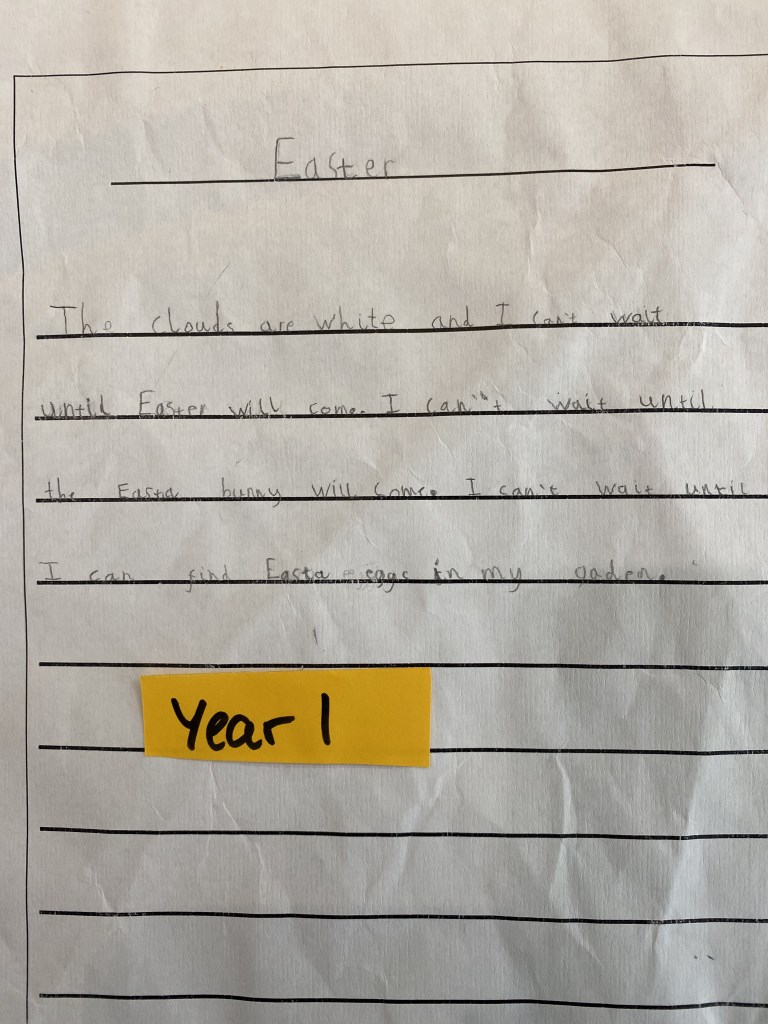 Easter
The clouds are white and I can't wait
until Easter will come. I can't wait until
the Easta bunny will come. I can't wait until
I can find Easta eggs in my gaden.
Year 1